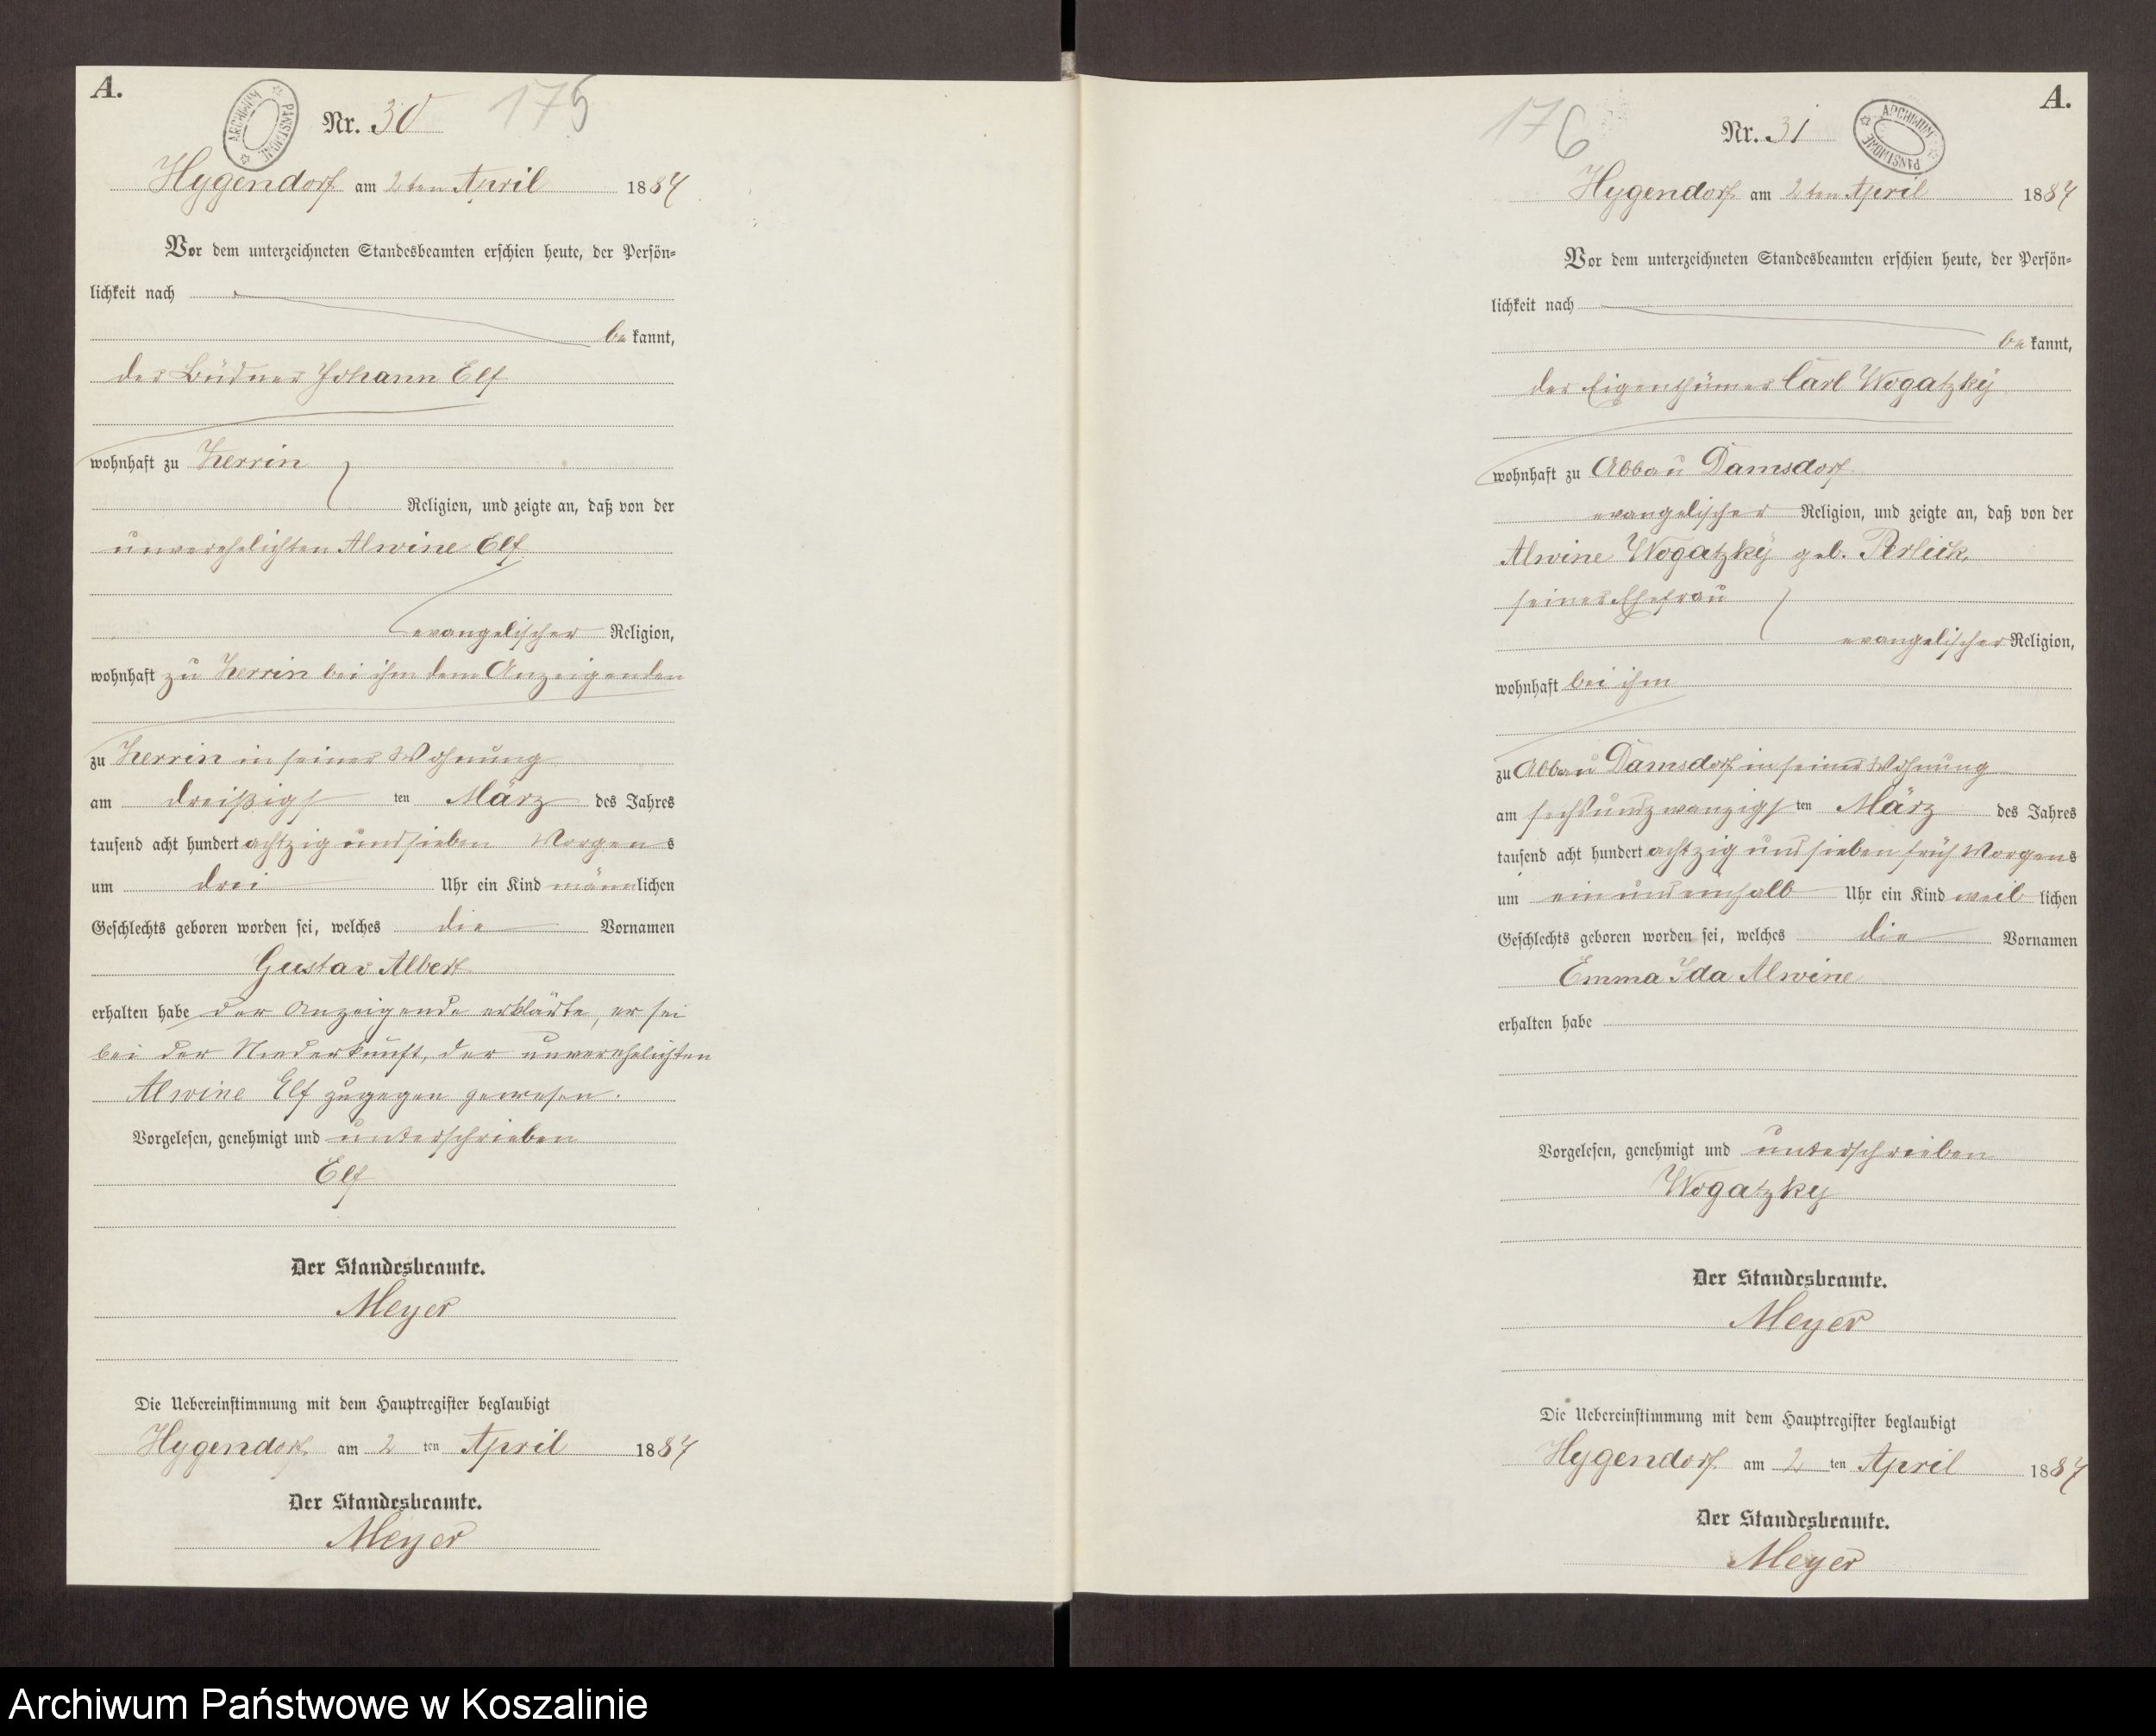 A.
ARCHIWUM PAŃSTWOWE
Nr. 30 175
Hygendorf am 2ten April 1887
Vor dem unterzeichneten Standesbeamten erschien heute, der Persön-
lichkeit nach
be kannt,
der Büdner Johann Elf
wohnhaft zu Zerrin
Religion, und zeigte an, daß von der
unverehelichten Alwine Elf
evangelischer Religion,
wohnhaft zu Zerrin bei ihm dem Anzeigenden
zu Zerrin in seiner Wohnung
am dreißigsten März des Jahres
tausend acht hundert achtzig und sieben Morgens
um drei Uhr ein Kind männlichen
Geschlechts geboren worden sei, welches die Vornamen
Gustav Albert
erhalten habe der Anzeigende erklärte, er sei
bei der Niederkunft, der unverehelichten
Alwine Elf zugegen gewesen.
Vorgelesen, genehmigt und unterschrieben
Elf
Der Standesbeamte.
Meyer
Die Uebereinstimmung mit dem Hauptregister beglaubigt
Hygendorf am 2 ten April 1887
Der Standesbeamte.
Meyer
A.
176 Nr. 31
ARCHIWUM PAŃSTWOWE
Hygendorf am 2ten April 1887
Vor dem unterzeichneten Standesbeamten erschien heute, der Persön-
lichkeit nach
be kannt,
der Eigenthümer Carl Wogatzky
wohnhaft zu Abbau Damsdorf
evangelischer Religion, und zeigte an, daß von der
Alwine Wogatzky geb. Perlick,
seiner Ehefrau
evangelischer Religion,
wohnhaft bei ihm
zu Abbau Damsdorf in seiner Wohnung
am sechsundzwanzigsten März des Jahres
tausend acht hundert achtzig und sieben früh Morgens
um ein und einhalb Uhr ein Kind weib lichen
Geschlechts geboren worden sei, welches die Vornamen
Emma Ida Alwine
erhalten habe
Vorgelesen, genehmigt und unterschrieben
Wogatzky
Der Standesbeamte.
Meyer
Die Uebereinstimmung mit dem Hauptregister beglaubigt
Hygendorf am 2 ten April 1887
Der Standesbeamte.
Meyer
Archiwum Państwowe w Koszalinie